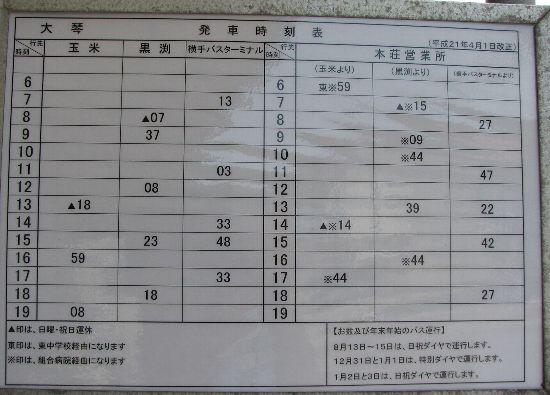 大琴 発車時刻表 (平成21年4月1日改正)
行先 時刻 玉米 黒渕 横手バスターミナル 行先 時刻 本荘営業所
(玉米より) (黒渕より) (横手バスターミナルより)
6 6 東※59
7 13 7 ▲※15
8 ▲07 8 27
9 37 9 ※09
10 10 ※44
11 03 11 47
12 08 12
13 ▲18 13 39 22
14 33 14 ▲※14
15 23 48 15 42
16 59 16 ※44
17 33 17 ※44
18 18 18 27
19 08 19
▲印は、日曜・祝日運休
東印は、東中学校経由になります
※印は、組合病院経由になります
【お盆及び年末年始のバス運行】
8月13日～15日は、日祝ダイヤで運行します。
12月31日と1月1日は、特別ダイヤで運行します。
1月2日と3日は、日祝ダイヤで運行します。